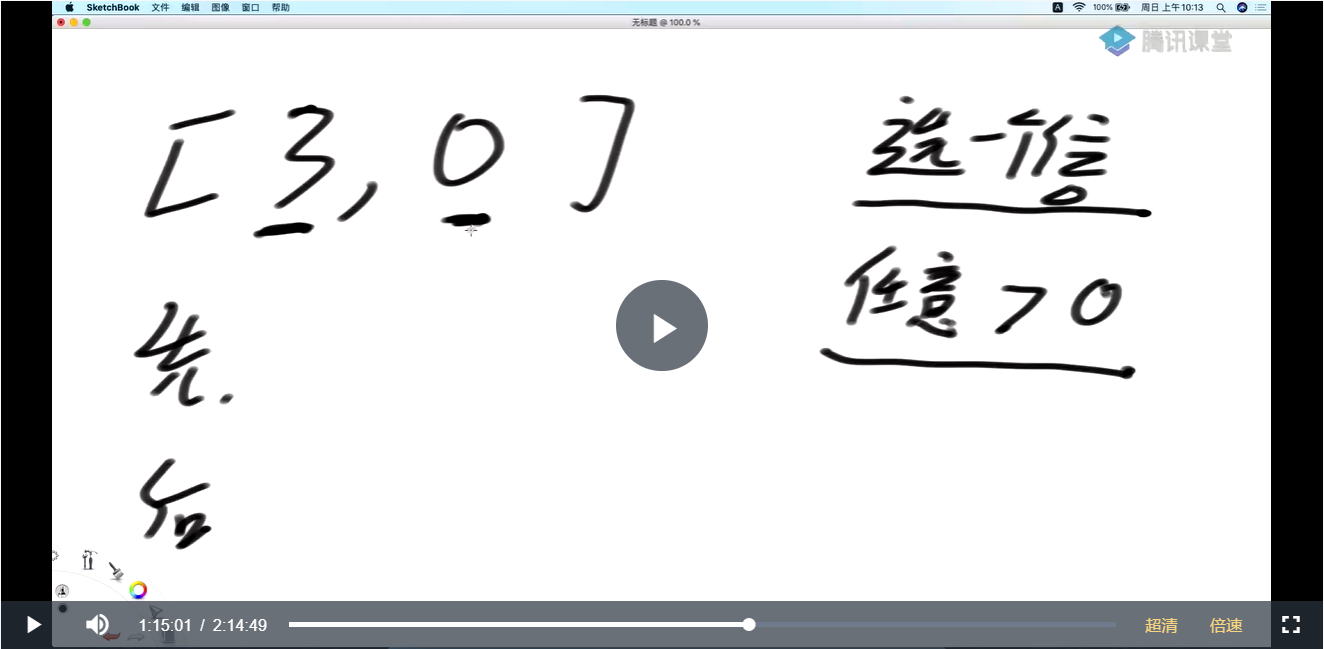 SketchBook 文件 编辑 图像 窗口 帮助 A 100% 周日 上午10:13
无标题 @ 100.0 %
腾讯课堂
[ 3, 0 ]
选一个位
任意 > 0
先.
后
1:15:01 / 2:14:49 超清 倍速